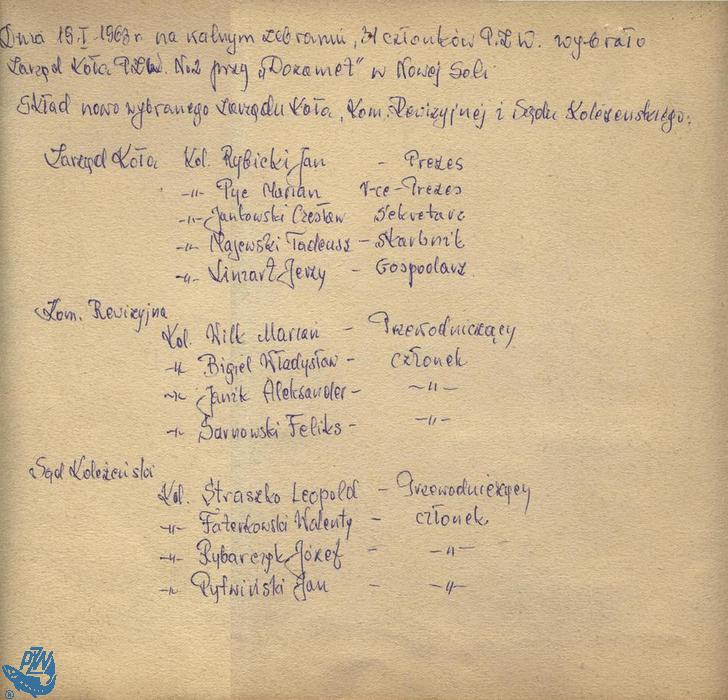 Dnia 19.I.1963r na walnym zebraniu, 31 członków P.Z.W. wybrało
Zarząd Koła P.Z.W. No2 przy „Dozamet” w Nowej Soli
Skład nowo wybranego Zarządu Koła, Kom. Rewizyjnej i Sądu Koleżeńskiego:
Zarząd Koła Kol. Rybicki Jan - Prezes
-"- Pyc Marian V-ce-Prezes
-"- Jankowski Czesław Sekretarz
-"- Majewski Tadeusz - Skarbnik
-"- Jerzy - Gospodarz
Kom. Rewizyjna
Kol. Wilk Marian - Przewodniczący
-"- Bigiel Władysław - członek
-"- Janik Aleksander - -"-
-"- Sarnowski Feliks - -"-
Sąd Koleżeński
Kol. Straszko Leopold - Przewodniczący
-"- Faterkowski Walenty - członek
-"- Rybarczyk Józef - -"-
-"- Pytwiński Jan - -"-
PZW
®